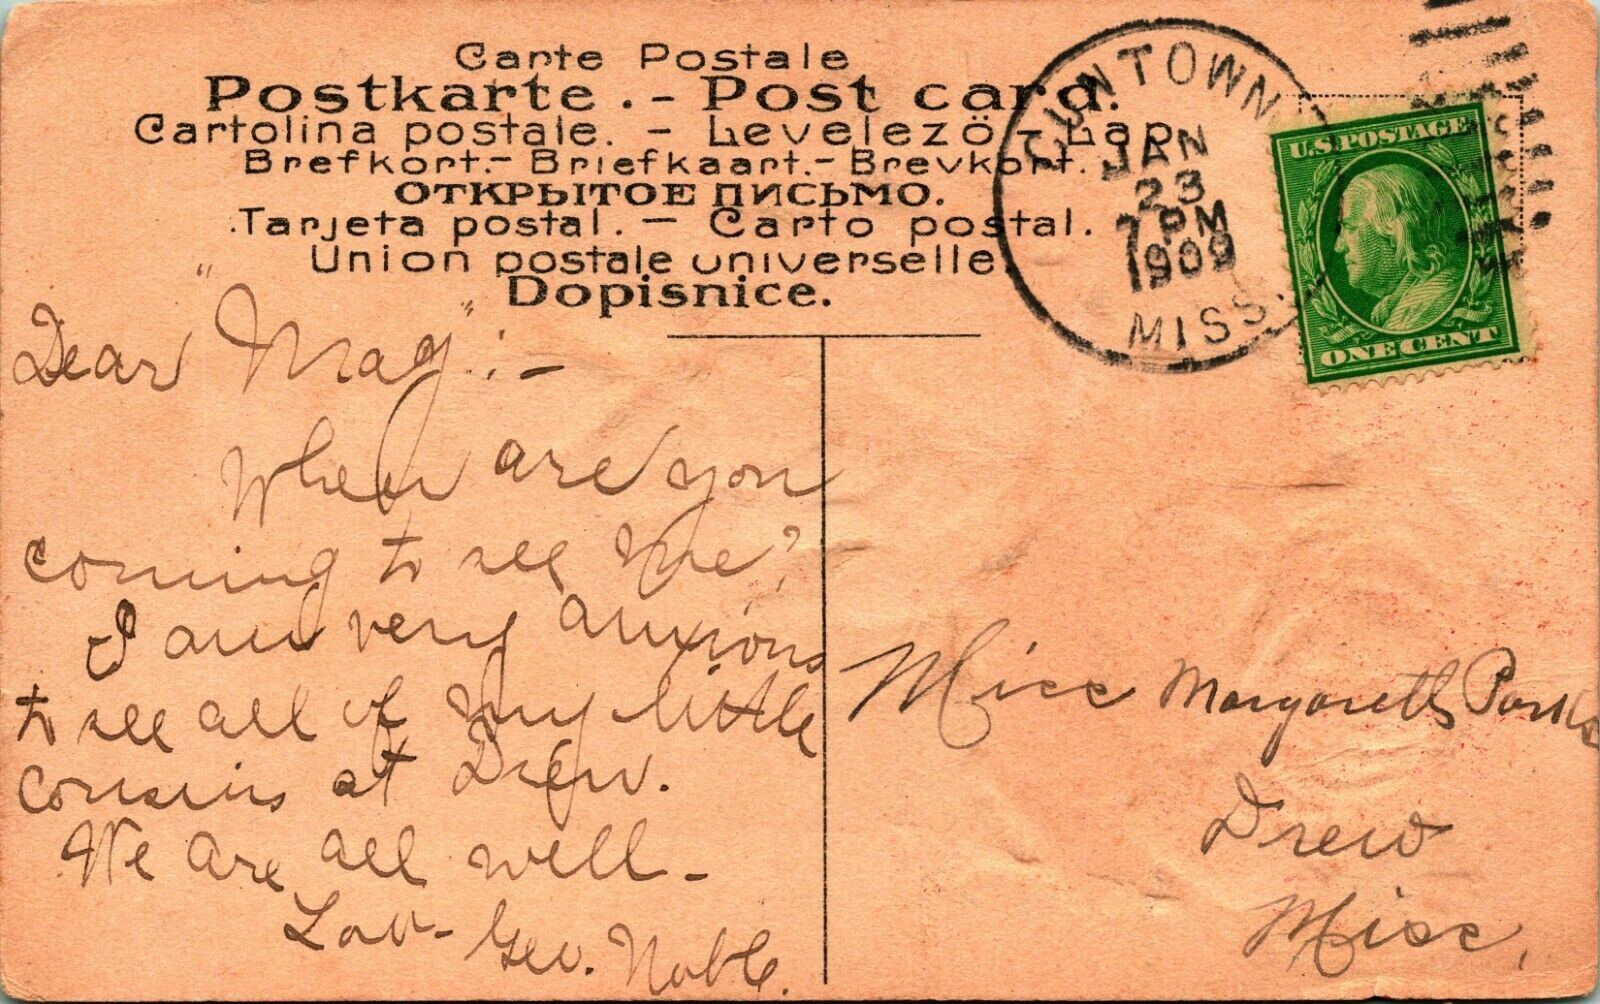 Carte Postale
Postkarte. - Post card.
Cartolina postale. - Levelezö-Lap.
Brefkort.- Briefkaart.- Brevkort.
ОТКРЫТОЕ ПИСЬМО.
Tarjeta postal. - Carto postal.
Union postale universelle.
Dopisnice.
GUNTOWN
JAN
23
7 PM
1909
MISS.
U.S. POSTAGE
ONE CENT
Dear "Mag":-
When are you
coming to see me?
I am very anxious
to see all of my little
cousins at Drew.
We are all well-
Lov- Geo. Noble.
Miss Margarett Parks
Drew
Miss,